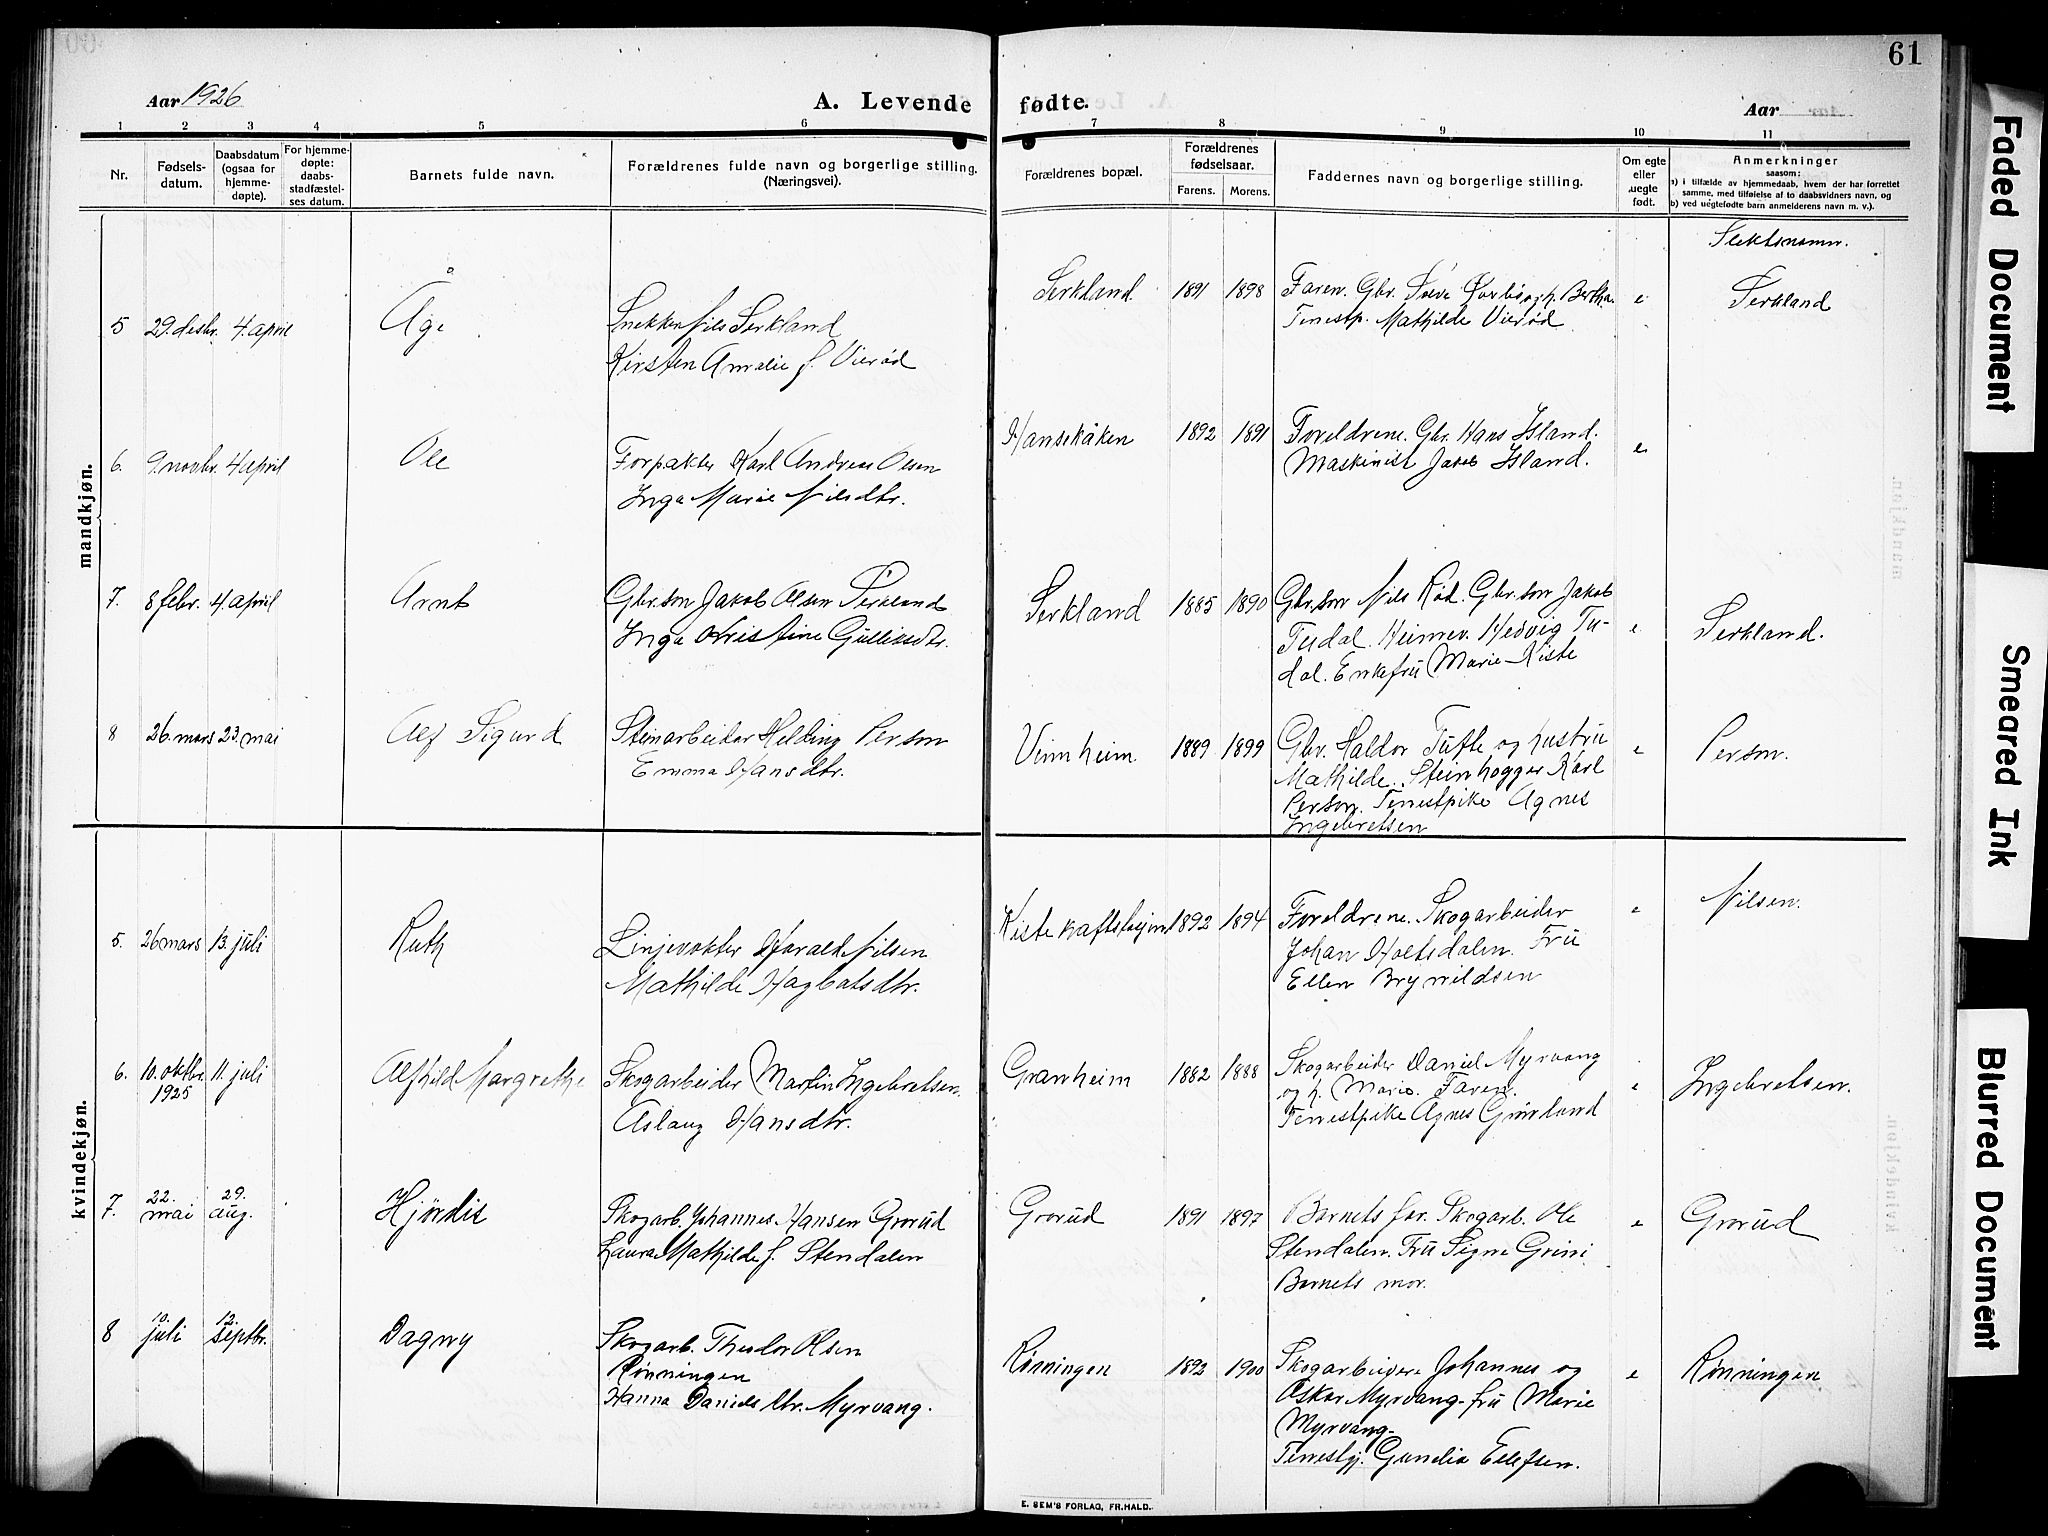 61
Aar 1926
A. Levende fødte.
Aar
1 2 3 4 5 6 7 8 9 10 11
Nr.
Fødsels-
datum.
Daabsdatum
(ogsaa for
hjemme-
døpte).
For hjemme-
døpte:
daabs-
stadfæstel-
ses datum.
Barnets fulde navn.
Forældrenes fulde navn og borgerlige stilling.
(Næringsvei).
Forældrenes bopæl.
Forældrenes
fødselsaar.
Farens. Morens.
Faddernes navn og borgerlige stilling.
Om egte
eller
uegte
født.
Anmerkninger
saasom:
a) i tilfælde av hjemmedaab, hvem der har forrettet
samme, med tilføielse af to daabsvidners navn, og
b) ved uegtefødte barn anmelderens navn m. v.).
Slektsnamn.
mandkjøn.
5 29. desbr. 4. april
Åge
Snekker Nils Serkland
Kirsten Amalie f. Vierød
Serkland. 1891 1898
Faren. Gbr. Søren h. Bertha.
Tenestp. Mathilde Vierød
e
Serkland
6. 9. novbr. 4 april
Ole
Forpakter Karl Andreas Olsen
Inga Marie Nilsdtr.
Hansekåken 1892 1891
Foreldrene. Gbr. Hans Island.
Maskinist Jakob Island.
e
7. 8 febr. 4 april
Arnt
Gbr.son Jakob Olsen Serkland
Inga Kristine Gulliksdtr.
Serkland 1885 1890
Gbr.son Nils Rød. Gbr.son Jakob
Tudal. Heimev. Hedvig Tu-
dal. Enkefru Marie Kiste
e
Serkland.
8 26. mars 23. mai
Alf Sigurd
Steinarbeider Helding Person
Emma Hansdtr.
Vimheim. 1889 1899
Gbr. Haldor Tufte og hustru
Mathilde. Steinhogger Karl
Person. Tenestpike Agnes
Ingebretsen
e
Person.
kvindekjøn.
5. 26 mars 13. juli
Ruth
Linjevokter Harald Nilsen
Mathilde Hagbartsdtr.
Kiste kaftstasjon 1892 1894
Foreldrene. Skogarbeider
Johan Holtsdalen. Fru
Ellen Brynildsen
e
Nilsen.
6. 10. oktbr. 11. juli
1925
Alfhild Margrethe
Skogarbeider Martin Ingebretsen.
Aslaug Hansdtr.
Granheim 1882 1888
Skogarbeider Daniel Myrvang
og h. Marie. Faren.
Tenestpike Agnes Grønland
e
Ingebretsen.
7. 22. mai 29. aug.
Hjørdis
Skogarb. Johannes Hansen Grorud
Laura Mathilde f. Stendalen
Grorud 1891 1897
Barnets far. Skogarb. Ole
Stendalen. Fru Signe Grini.
Barnets mor.
e
Grorud
8 10. juli 12. septbr.
Dagny
Skogarb. Theodor Olsen
Rønningen
Hanna Daniels dtr. Myrvang.
Rønningen 1892 1900
Skogarbeidere Johannes og
Oskar Myrvang - fru Marie
Myrvang -
Tenestgj. Gunelia Ellefsen.
e
Rønningen
E. SEM'S FORLAG, FR.HALD.
Faded Document
Smeared Ink
Blurred Document